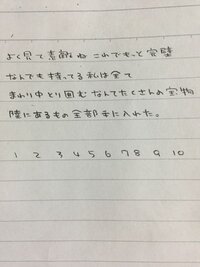 よく見て素敵ね これでもっと完璧
なんでも持ってる私は全て
まわり中とり囲むなんてたくさんの宝物
陸にあるもの全部手に入れた。
1 2 3 4 5 6 7 8 9 10